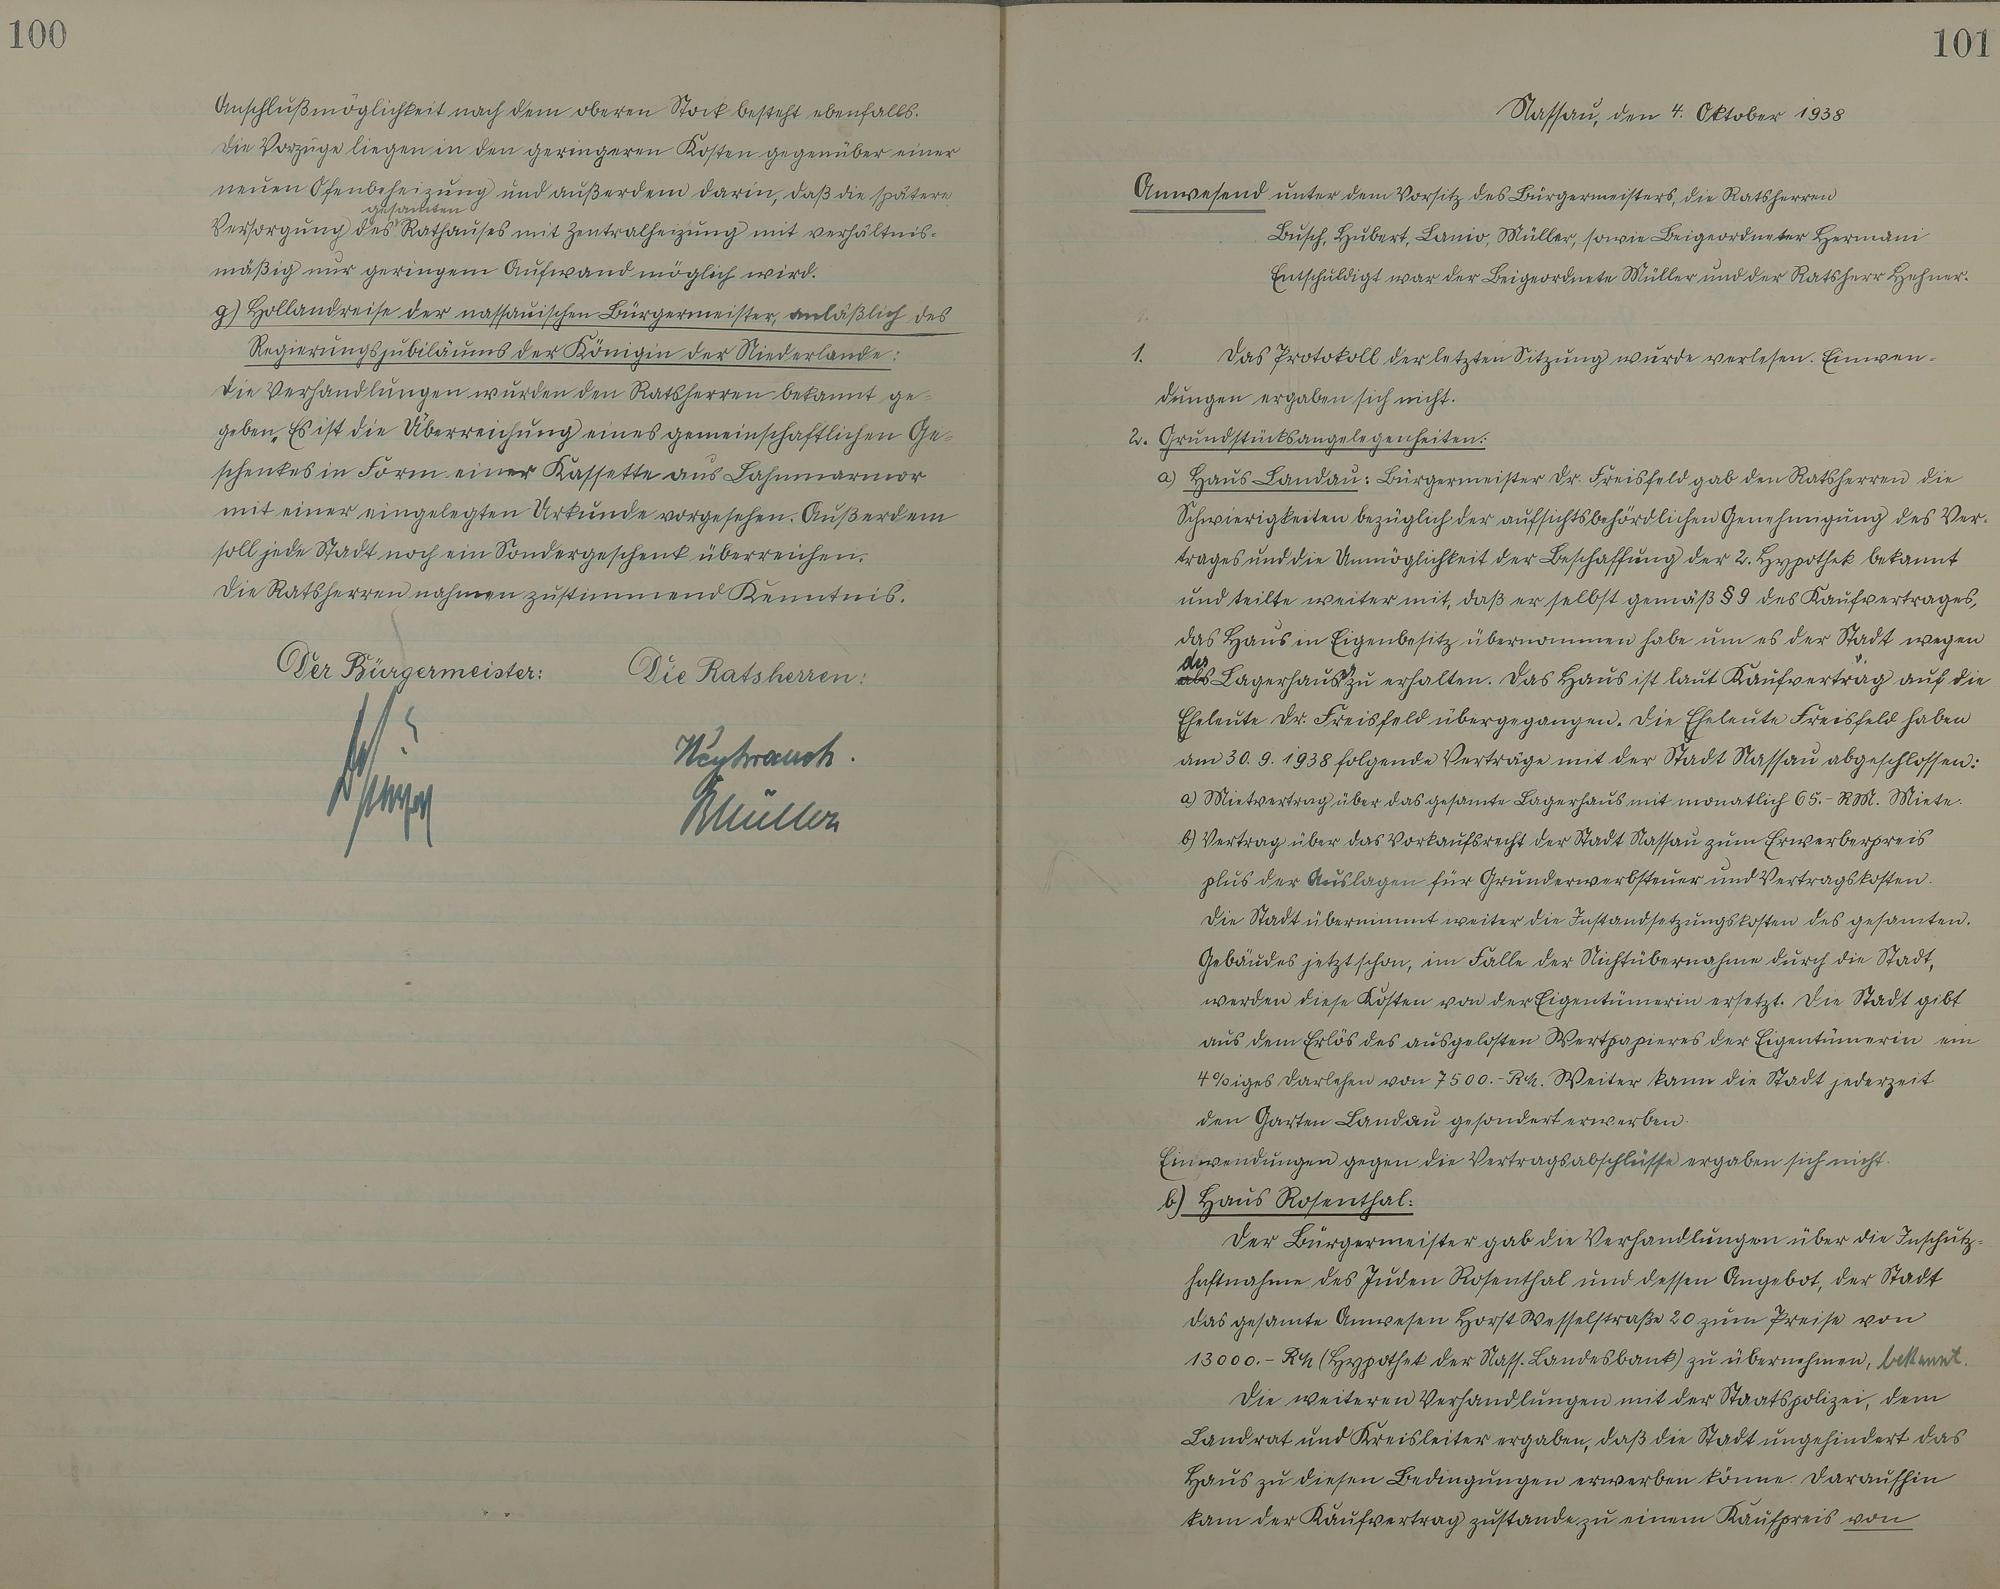 100
Anschlußmöglichkeit nach dem oberen Stock besteht ebenfalls.
Die Vorzüge liegen in den geringeren Kosten gegenüber einer
neuen Ofenbeheizung und außerdem darin, daß die spätere
gesamten
Versorgung des Rathauses mit Zentralheizung mit verhältnis-
mäßig nur geringem Aufwand möglich wird.
g) Hollandreise der nassauischen Bürgermeister, anläßlich des
Regierungsjubiläums der Königin der Niederlande:
Die Verhandlungen wurden den Ratsherren bekannt ge-
geben. Es ist die Überreichung eines gemeinschaftlichen Ge-
schenkes in Form einer Kassette aus Lahnmarmor
mit einer eingelegten Urkunde vorgesehen. Außerdem
soll jede Stadt noch ein Sondergeschenk überreichen.
Die Ratsherren nahmen zustimmend Kenntnis.
Der Bürgermeister: Die Ratsherren:
Müller
101
Nassau, den 4. Oktober 1938
Anwesend unter dem Vorsitz des Bürgermeisters, die Ratsherren
Busch, Hubert, Lanio, Müller, sowie Beigeordneter Hermani
Entschuldigt war der Beigeordnete Müller und der Ratsherr Hehner.
1. Das Protokoll der letzten Sitzung wurde verlesen. Einwen-
dungen ergaben sich nicht.
2. Grundstücksangelegenheiten:
a) Haus Landau: Bürgermeister Dr. Freisfeld gab den Ratsherren die
Schwierigkeiten bezüglich der aufsichtsbehördlichen Genehmigung des Ver-
trages und die Unmöglichkeit der Beschaffung der 2. Hypothek bekannt
und teilte weiter mit, daß er selbst gemäß § 9 des Kaufvertrages,
das Haus in Eigenbesitz übernommen habe um es der Stadt wegen
des
als Lagerhaus zu erhalten. Das Haus ist laut Kaufvertrag auf die
Eheleute Dr. Freisfeld übergegangen. Die Eheleute Freisfeld haben
am 30. 9. 1938 folgende Verträge mit der Stadt Nassau abgeschlossen:
a) Mietvertrag über das gesamte Lagerhaus mit monatlich 65.- RM. Miete.
b) Vertrag über das Vorkaufsrecht der Stadt Nassau zum Erwerberpreis
plus der Auslagen für Grunderwerbsteuer und Vertragskosten.
Die Stadt übernimmt weiter die Instandsetzungskosten des gesamten.
Gebäudes jetzt schon, im Falle der Nichtübernahme durch die Stadt,
werden diese Kosten von der Eigentümerin ersetzt. Die Stadt gibt
aus dem Erlös des ausgelosten Wertpapieres der Eigentümerin ein
4%iges Darlehen von 7500.- RM. Weiter kann die Stadt jederzeit
den Garten Landau gesondert erwerben.
Einwendungen gegen die Vertragsabschlüsse ergaben sich nicht.
b) Haus Rosenthal:
Der Bürgermeister gab die Verhandlungen über die Inschutz-
haftnahme des Juden Rosenthal und dessen Angebot, der Stadt
das gesamte Anwesen Horst Wesselstraße 20 zum Preise von
13000.- RM (Hypothek der Nass. Landesbank) zu übernehmen, bekannt.
Die weiteren Verhandlungen mit der Staatspolizei, dem
Landrat und Kreisleiter ergaben, daß die Stadt ungehindert das
Haus zu diesen Bedingungen erwerben könne. Daraufhin
kam der Kaufvertrag zustande zu einem Kaufpreis von